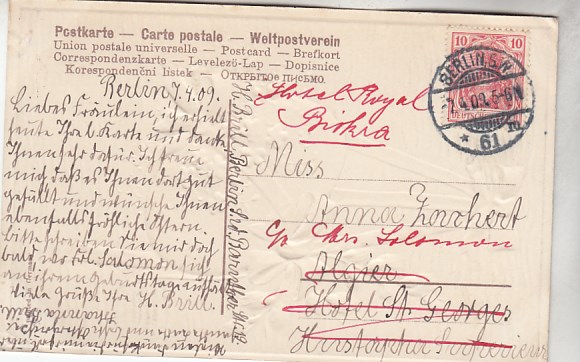 Postkarte — Carte postale — Weltpostverein
Union postale universelle — Postcard — Brefkort
Correspondenzkarte — Levelező-Lap — Dopisnice
Korespondenční listek — ОТКРЫТОЕ ПИСЬМО.
10 10
BERLIN S.W.
7.4.09. 5-6N
* 61
Berlin 7.4.09.
Liebes Fräulein, ich erhielt
heute Ihre l. Karte und danke
Ihnen sehr dafür. Ich freue
mich daß es Ihnen dort gut
gefällt und wünsche Ihnen
ebenfalls fröhliche Ostern.
Bitte schreiben Sie mir doch
bald, wo Frl. Salomon sich
an ihrem Geburtstag aufhält
Viele Grüße Ihre H. Brill
H. Brill, Berlin
Hotel Royal
Biskra
Miss
Anna Zachert
c/o Mrs. Salomon
Algier
Hôtel St. Georges